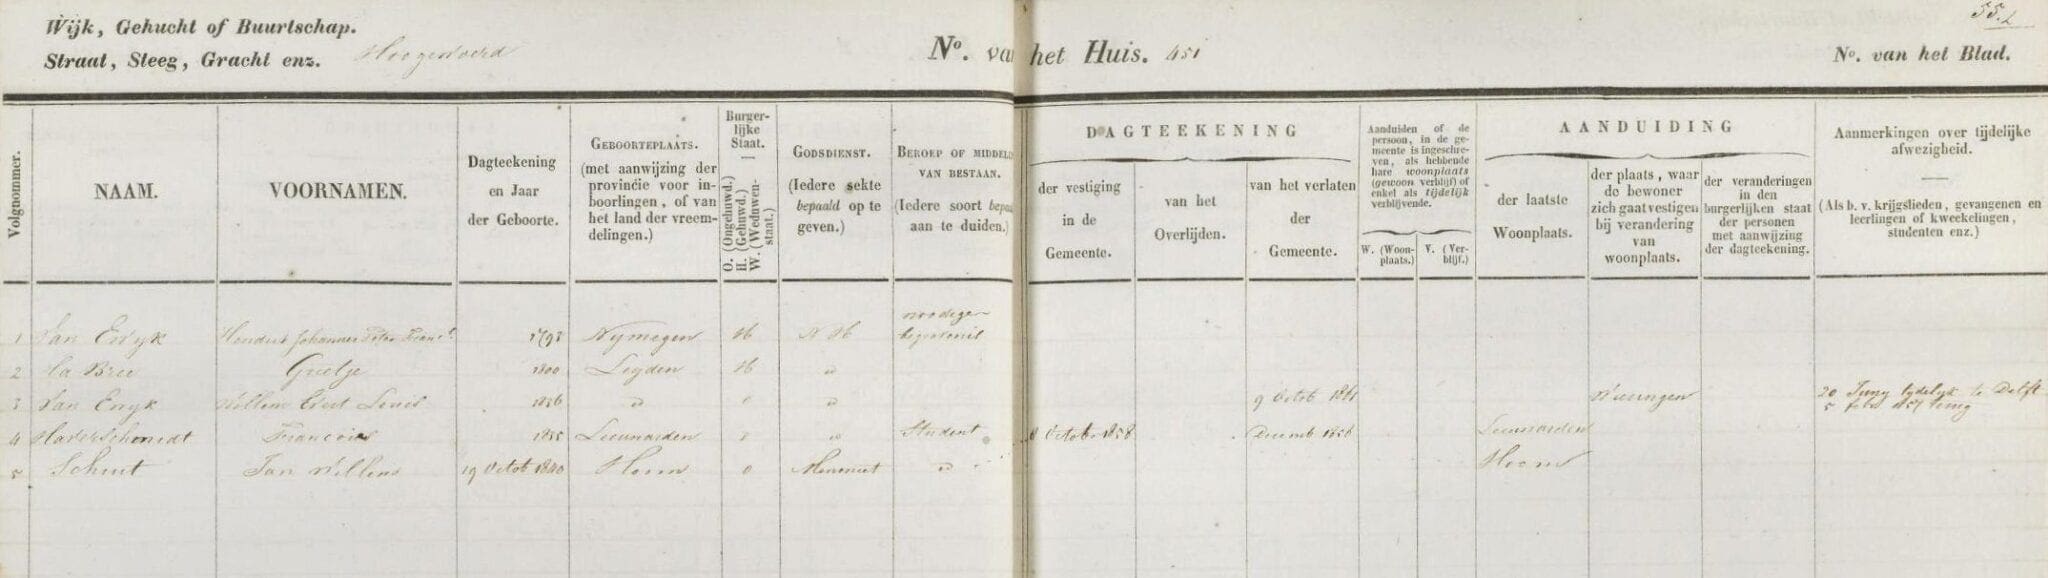 Wijk, Gehucht of Buurtschap.
Straat, Steeg, Gracht enz. Hoogewoerd
No. van het Huis. 451
552
No. van het Blad.
Volgnommer.
NAAM.
VOORNAMEN.
Dagteekening
en Jaar
der Geboorte.
GEBOORTEPLAATS.
(met aanwijzing der
provincie voor in-
boorlingen, of van
het land der vreem-
delingen.)
Burger-
lijke
Staat.
O. (Ongehuwd.)
H. (Gehuwd.)
W. (Weduwen-
staat.)
GODSDIENST.
(Iedere sekte
bepaald op te
geven.)
BEROEP OF MIDDEL
VAN BESTAAN.
(Iedere soort bepaa
aan te duiden.)
DAGTEEKENING
der vestiging
in de
Gemeente.
van het
Overlijden.
van het verlaten
der
Gemeente.
Aanduiden of de
persoon, in de ge-
meente is ingeschre-
ven, als hebbende
hare woonplaats
(gewoon verblijf) of
enkel als tijdelijk
verblijvende.
W. (Woon-
plaats.)
V. (Ver-
blijf.)
AANDUIDING
der laatste
Woonplaats.
der plaats, waar
de bewoner
zich gaat vestigen
bij verandering
van
woonplaats.
der veranderingen
in den
burgerlijken staat
der personen
met aanwijzing
der dagteekening.
Aanmerkingen over tijdelijke
afwezigheid.
(Als b. v. krijgslieden, gevangenen en
leerlingen of kweekelingen,
studenten enz.)
1 Van Johannes Peter 1793 Nymegen H N H
2 La Bree Grietje 1800 Leyden H "
3 Van Willem Evert Louis 1836 " O " 9 Octob 1861 Wieringen 20 Juny tydelyk te Delft
5 febr 1857 terug
4 Haverschmidt Francois 1835 Leeuwarden O " Student 8 October 1858 Decemb 1858 Leeuwarden
5 Schuit Jan Willem 19 Octob 1840 Hoorn O Menoniet " Hoorn